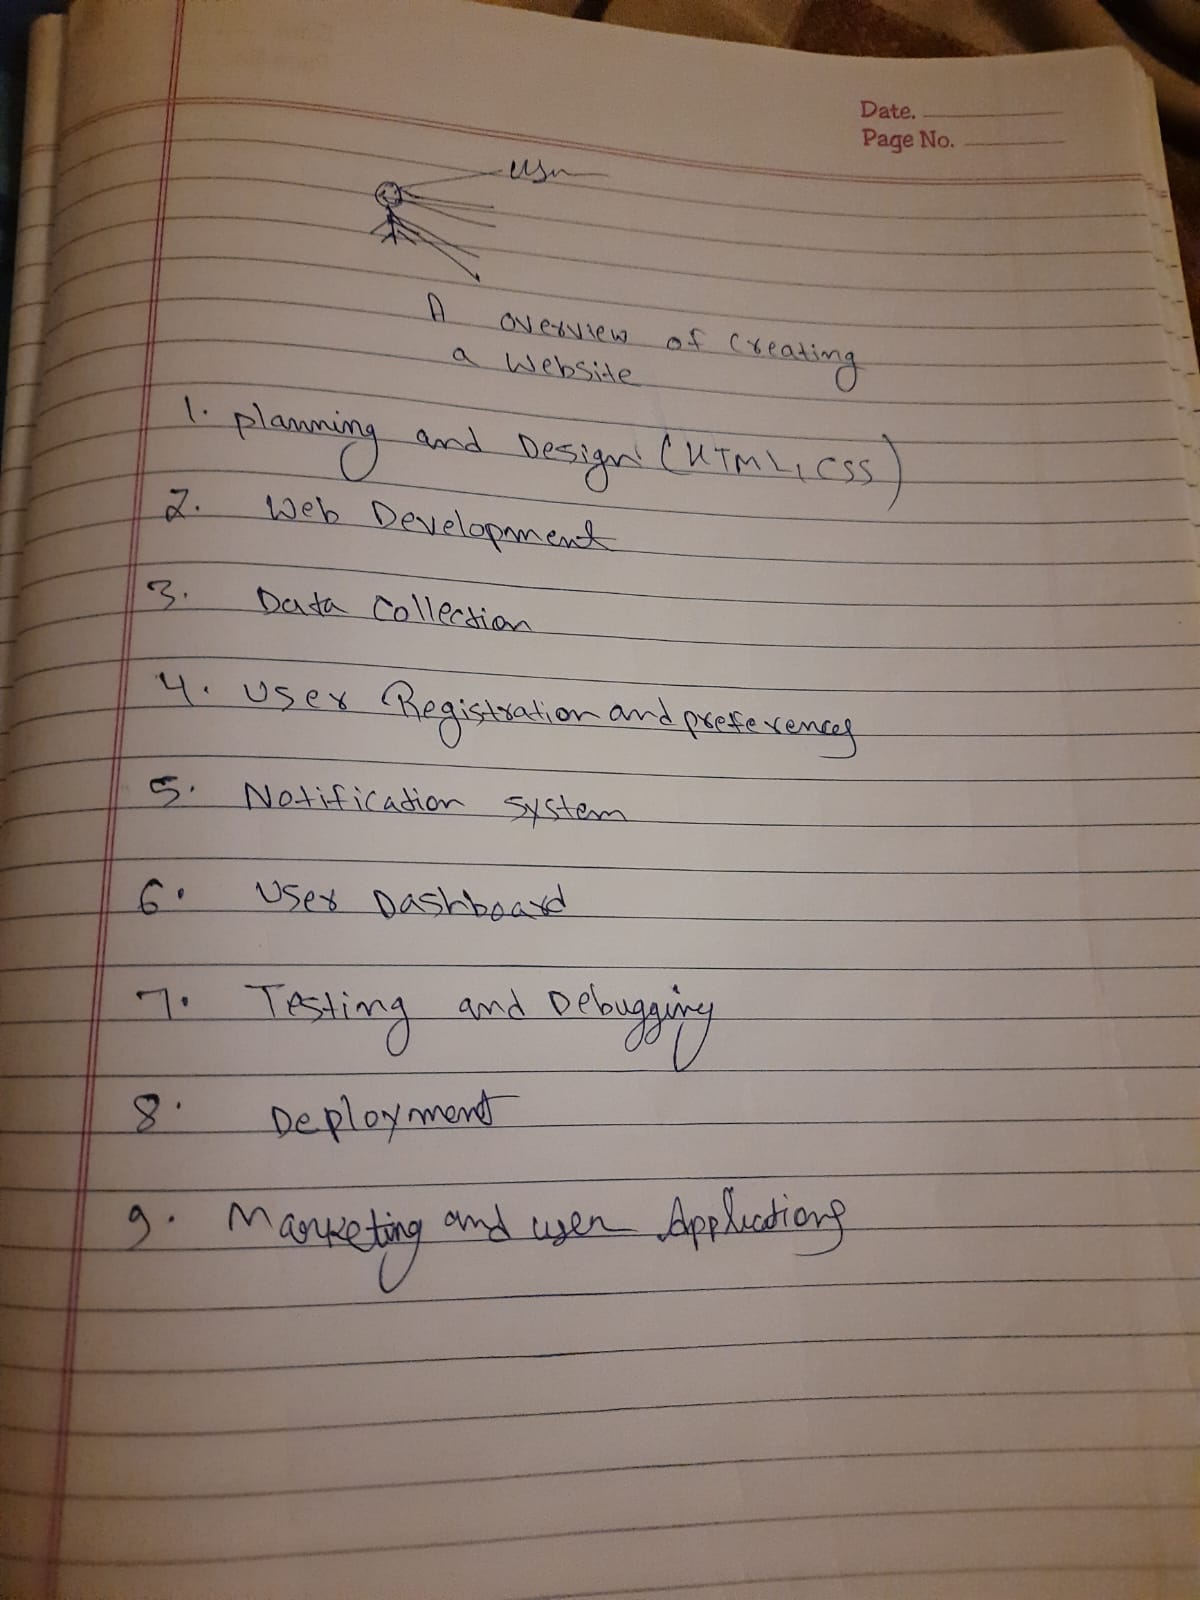 Date.
Page No.
user
A overview of Creating
a Website
1. planning and Design (HTML, CSS)
2. Web Development
3. Data Collection
4. User Registration and preferences
5. Notification System
6. User Dashboard
7. Testing and Debugging
8. Deployment
9. Marketing and user Applications